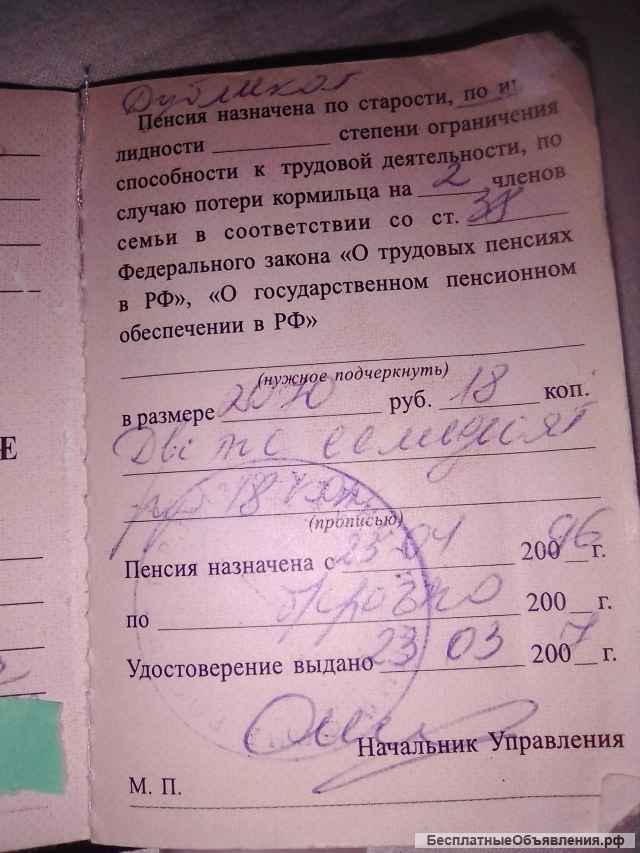 Дубликат
Пенсия назначена по старости, по ин
лидности ________ степени ограничения
способности к трудовой деятельности, по
случаю потери кормильца на 2 членов
семьи в соответствии со ст.
Федерального закона «О трудовых пенсиях
в РФ», «О государственном пенсионном
обеспечении в РФ»
(нужное подчеркнуть)
в размере 2070 руб. 18 коп.
Две тс семьдесят
18 коп
(прописью)
Е
Пенсия назначена с 23 04 200 96 г.
по 200__ г.
Удостоверение выдано 23 03 2007 г.
Начальник Управления
М. П.
БесплатныеОбъявления.рф